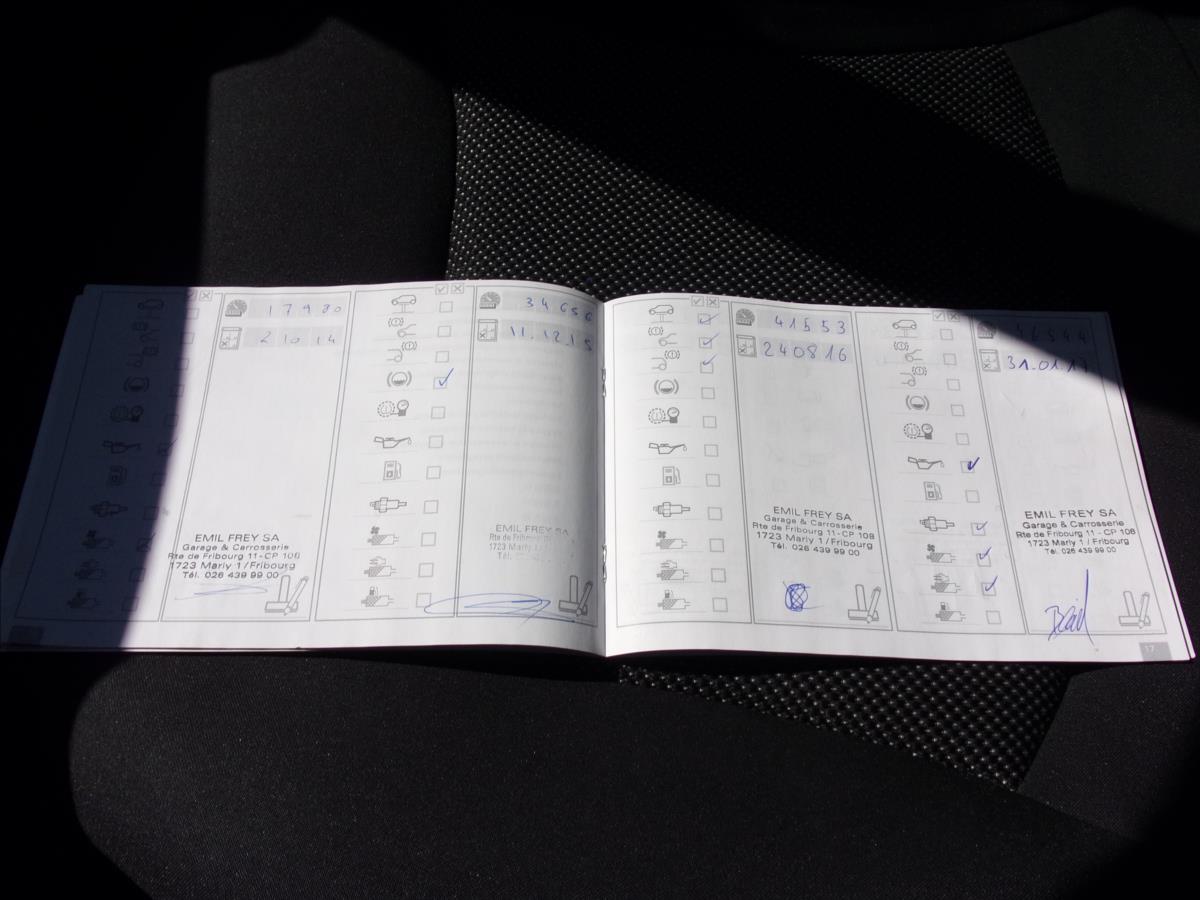 17980
2 10 14
EMIL FREY SA
Garage & Carrosserie
Rte de Fribourg 11 - CP 108
1723 Marly 1 / Fribourg
Tél. 026 439 99 00
34656
11.12.15
EMIL FREY SA
Garage & Carrosserie
Rte de Fribourg
1723 Marly 1 / Fribourg
Tél.
41553
240816
EMIL FREY SA
Garage & Carrosserie
Rte de Fribourg 11 - CP 108
1723 Marly 1 / Fribourg
Tél. 026 439 99 00
31.01.17
EMIL FREY SA
Garage & Carrosserie
Rte de Fribourg 11 - CP 108
1723 Marly 1 / Fribourg
Tél. 026 439 99 00
17